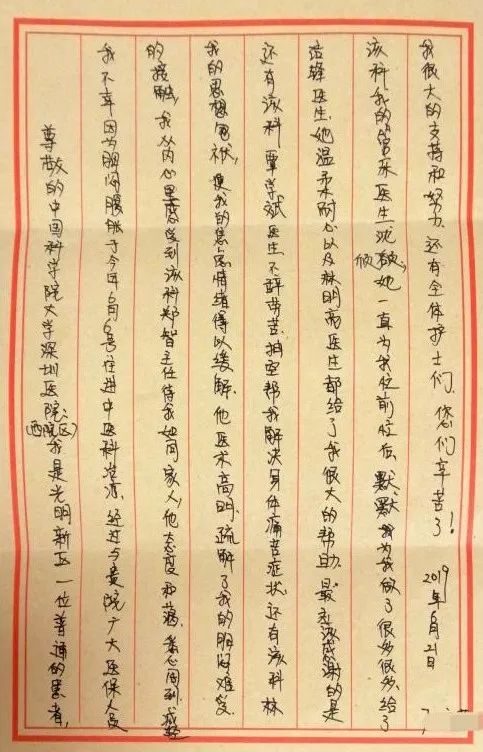 尊敬的中国科学院大学深圳医院(西院区):我是光明新区一位普通的患者,
我不幸因为胸闷腹胀于今年6月6号住进中医科 经过与贵院广大医保人员
的接触,我从内心里感受到该科郑智主任待我如同家人,他态度和蔼,悉心周到,减轻
我的思想包袱,使我的焦急情绪得以缓解。他医术高明,疏解了我的胸闷难受。
还有该科覃学斌医生不辞劳苦,抽空帮我解决身体痛苦症状。还有该科林
洁锋医生她温柔耐心以及林明高医生都给了我很大的帮助。最应该感谢的是
该科我的管床医生沈 欣,她一直为我忙前忙后,默默为我做了很多很多,给了
我很大的支持和努力。还有全体护士们,您们辛苦了!
2019年6月21日